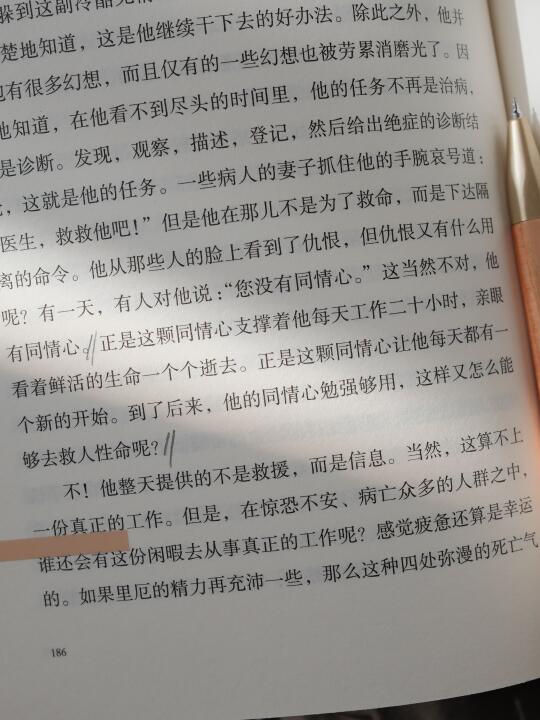 躲到这副冷酷
楚地知道，这是他继续干下去的好办法。除此之外，他并
有很多幻想，而且仅有的一些幻想也被劳累消磨光了。因
他知道，在他看不到尽头的时间里，他的任务不再是治病，
是诊断。发现，观察，描述，登记，然后给出绝症的诊断结
，这就是他的任务。一些病人的妻子抓住他的手腕哀号道：
医生，救救他吧！”但是他在那儿不是为了救命，而是下达隔
离的命令。他从那些人的脸上看到了仇恨，但仇恨又有什么用
呢？有一天，有人对他说：“您没有同情心。”这当然不对，他
有同情心。正是这颗同情心支撑着他每天工作二十小时，亲眼
看着鲜活的生命一个个逝去。正是这颗同情心让他每天都有一
个新的开始。到了后来，他的同情心勉强够用，这样又怎么能
够去救人性命呢？
不！他整天提供的不是救援，而是信息。当然，这算不上
一份真正的工作。但是，在惊恐不安、病亡众多的人群之中，
谁还会有这份闲暇去从事真正的工作呢？感觉疲惫还算是幸运
的。如果里厄的精力再充沛一些，那么这种四处弥漫的死亡气
186